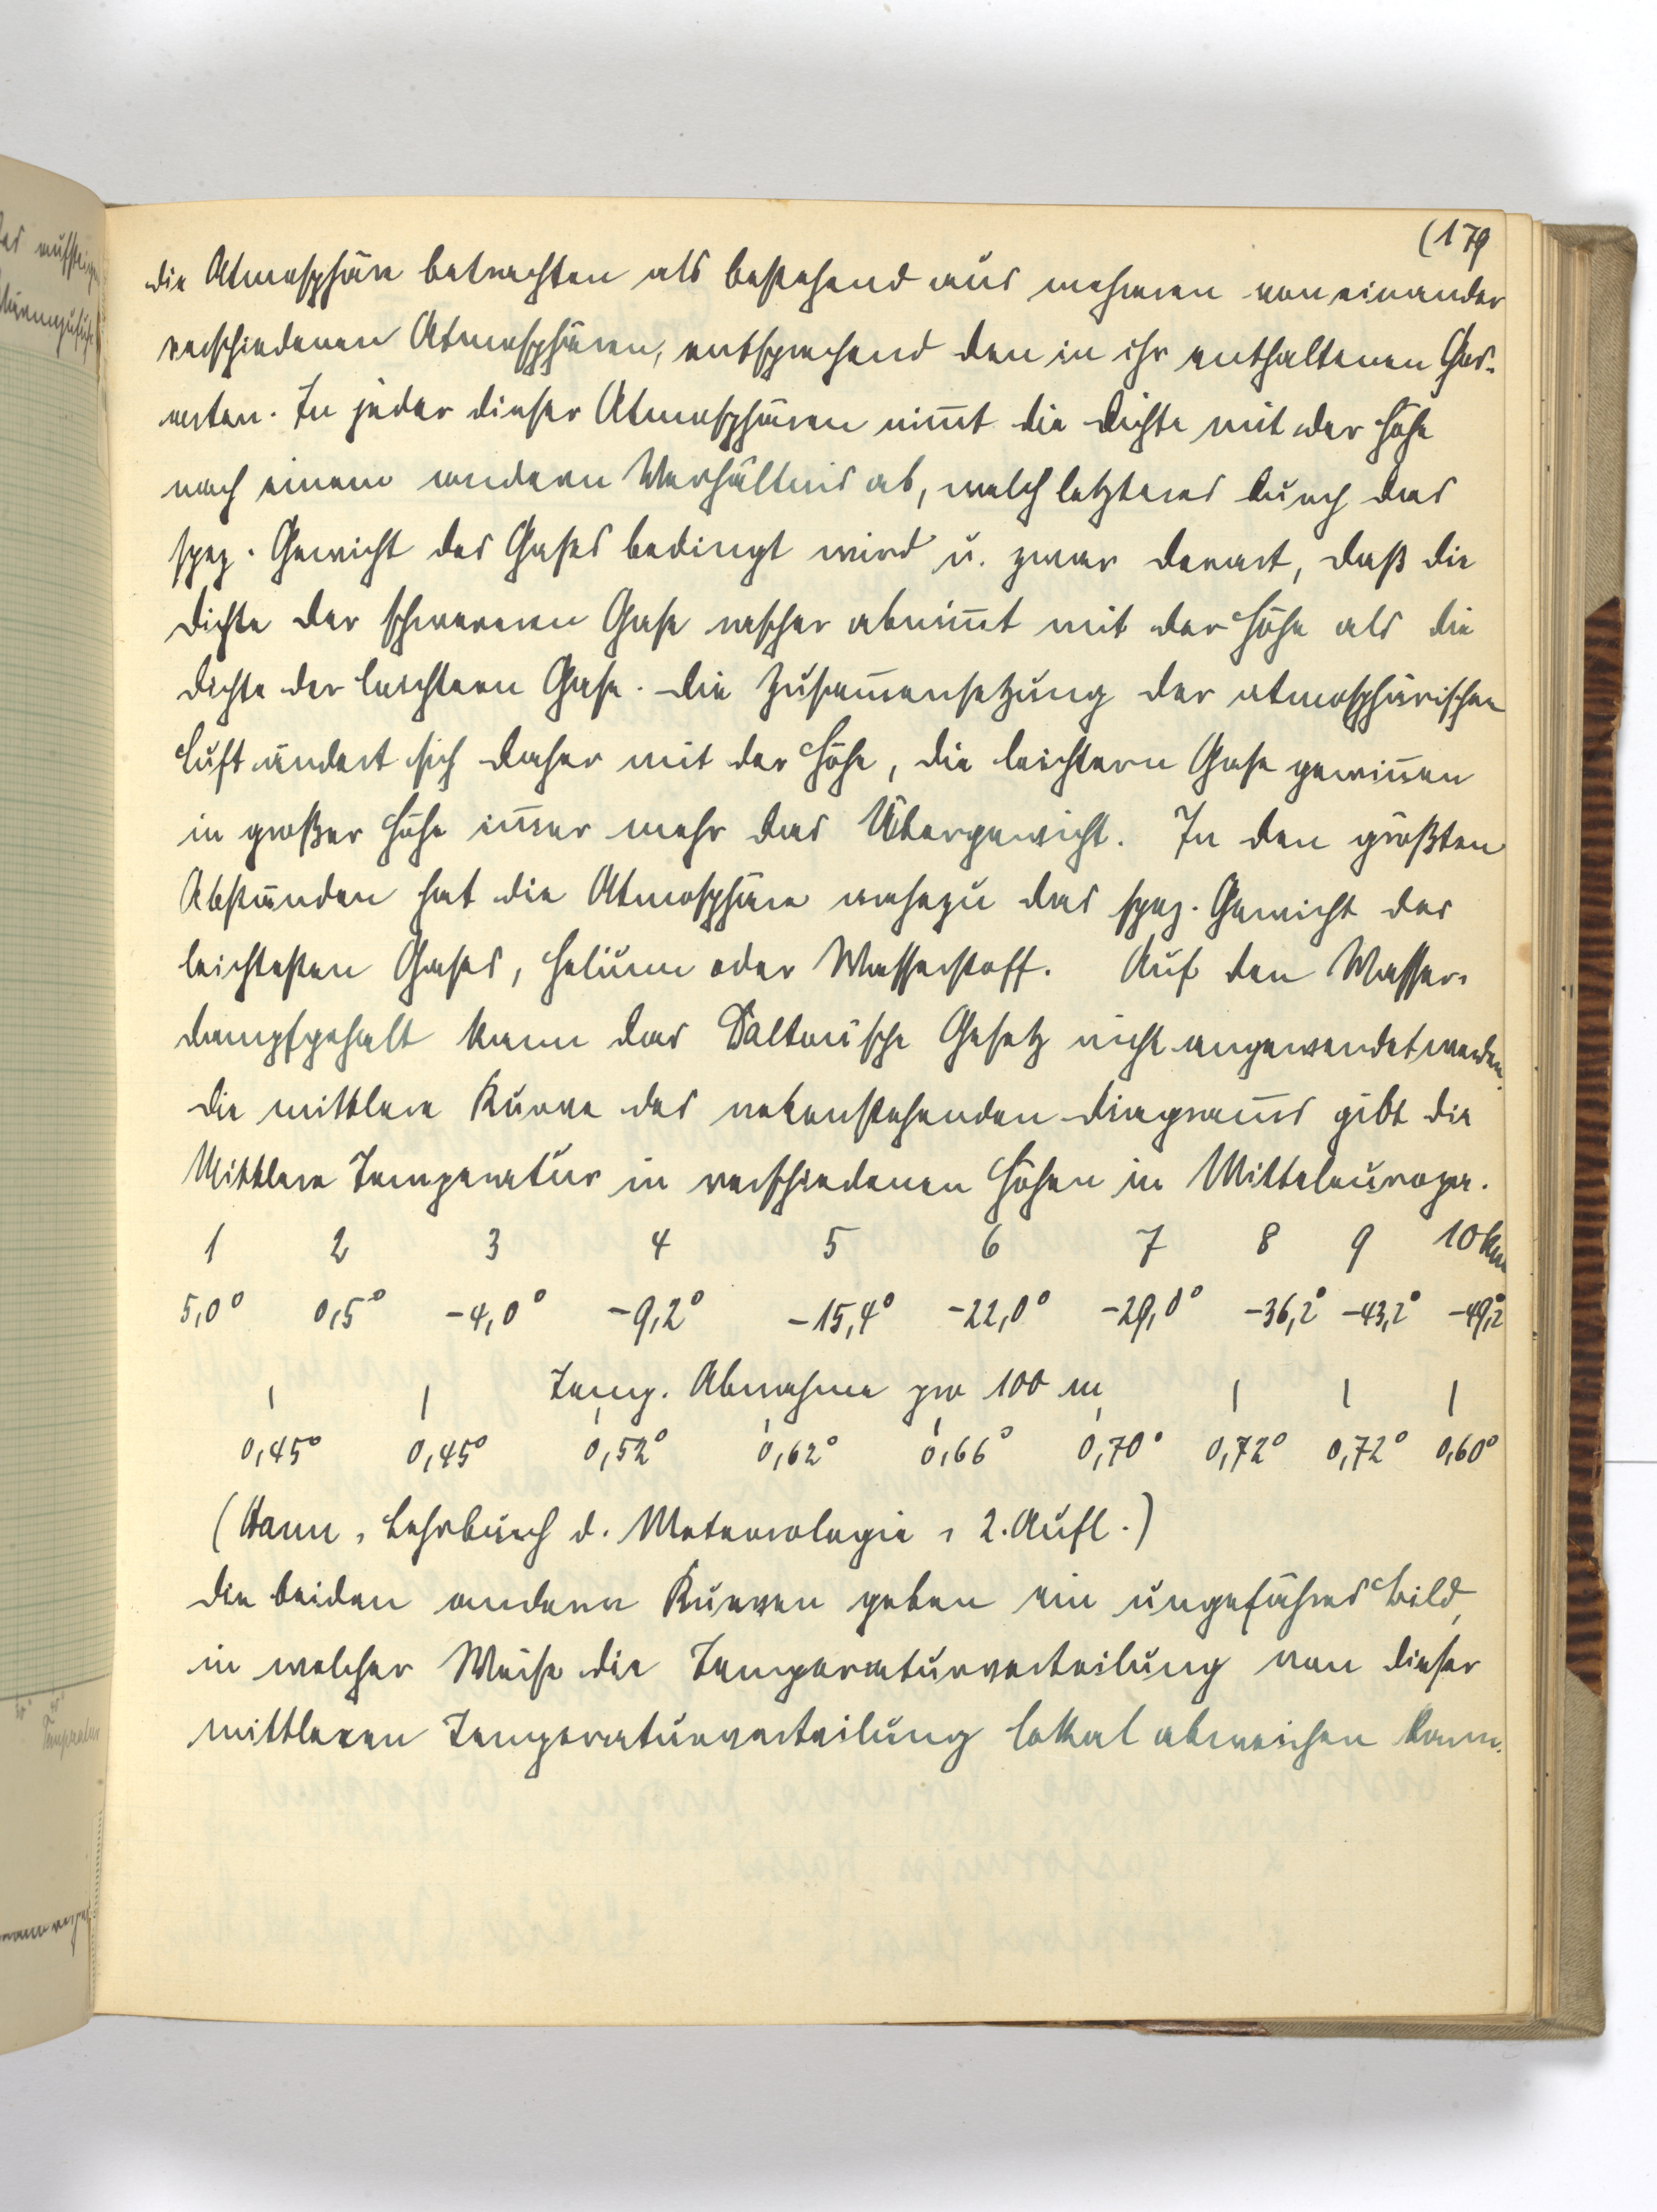 (179
die Atmosphäre betrachten als bestehend aus mehreren von einander
verschiedenen Atmosphären, entsprechend den in ihr enthaltenen Gas-
arten. In jeder dieser Atmosphären nim̄t die Dichte mit der Höhe
nach einem andern Verhältnis ab, welch letzteres durch das
spez. Gewicht des Gases bedingt wird u. zwar derart, daß die
Dichte der schwereren Gase rascher abnim̄t mit der Höhe als die
Dichte der leichtern Gase. Die Zusam̄ensetzung der atmosphärischen
Luft ändert sich daher mit der Höhe, die leichtern Gase gewin̄en
in großer Höhe im̄er mehr das Übergewicht. In den größten
Abständen hat die Atmosphäre nahezu das spez. Gewicht des
leichtesten Gases, Helium oder Wasserstoff. Auf den Wasser-
dampfgehalt kann das Daltonische Gesetz nicht angewendet werden.
Die mittlere Kurve des nebenstehenden Diagram̄s gibt die
Mittlere Temperatur in verschiedenen Höhen in Mitteleuropa.
1 2 3 4 5 6 7 8 9 10 km
5,0° 0,5° -4,0° -9,2° -15,4° -22,0° -29,0° -36,2° -43,2° -49,2°
Temp. Abnahme pro 100 m
0,45° 0,45° 0,52° 0,62° 0,66° 0,70° 0,72° 0,72° 0,60°
(Hann, Lehrbuch d. Meteorologie, 2. Aufl.)
Die beiden andern Kurven geben ein ungefähres Bild,
in welcher Weise die Temperaturverteilung von dieser
mittleren Temperaturverteilung lokal abweichen kann.